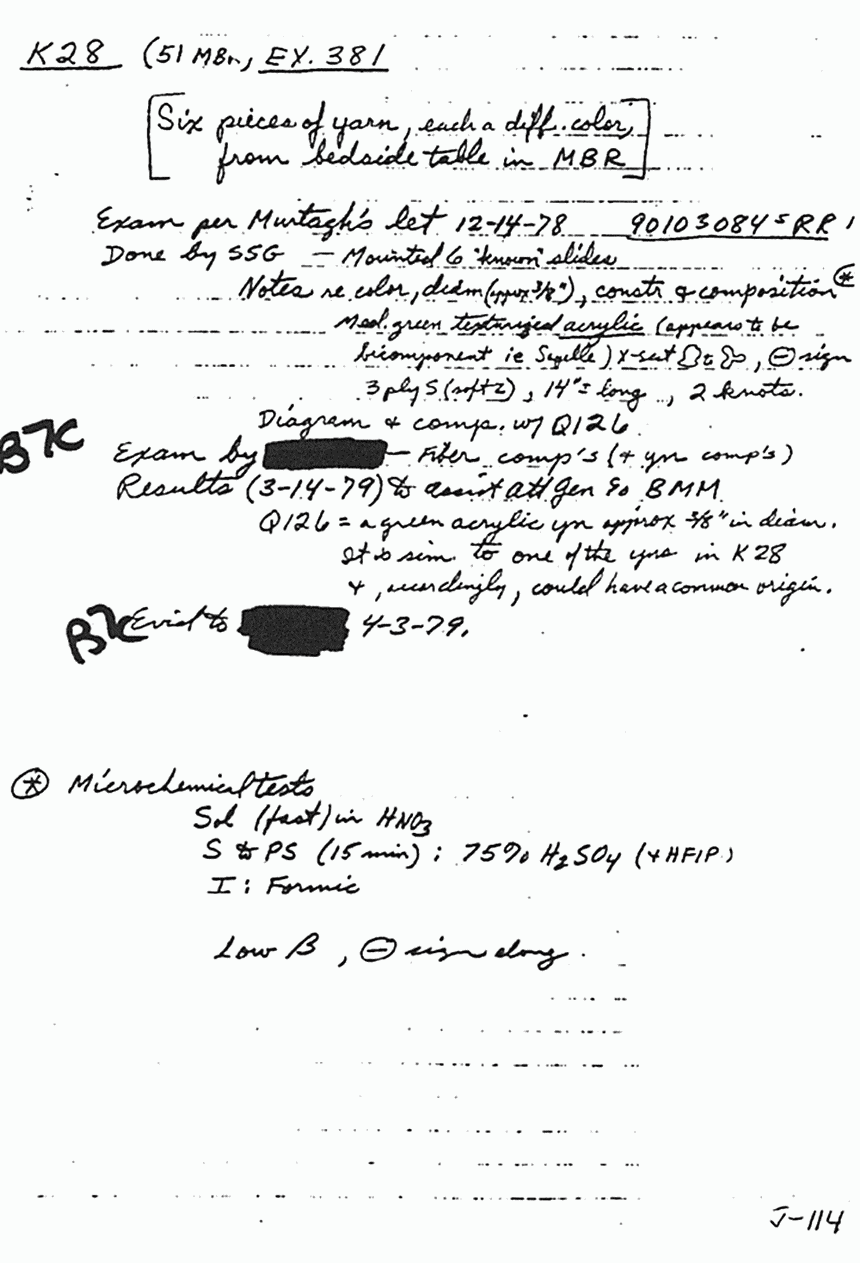 K28 (51 MBr, EX. 381
[Six pieces of yarn, each a diff. color,
from bedside table in MBR]
Exam per Murtagh's let 12-14-78 90103084 S RR 1
Done by SSG — Mounted 6 "known" slides
Notes re color, diam (appox 3/8"), constr & composition *
Med. green texturized acrylic (appears to be
bicomponent ie Sayelle) x-sect to , ⊖ sign
3 ply S (soft z), 14"± long, 2 knots.
Diagram & comp. w/ Q126
B7C
Exam by — Fiber comp's (+ yn comp's)
Results (3-14-79) to assist Att Gen fo BMM
Q126 = a green acrylic yn approx 3/8" in diam.
It is sim. to one of the yns in K28
+, accordingly, could have a common origin.
B7C Evid to 4-3-79.
* Microchemical tests
Sol (fast) in HNO3
S to PS (15 min) : 75% H2SO4 (+ HFIP)
I : Formic
Low B, ⊖ sign elong.
J-114